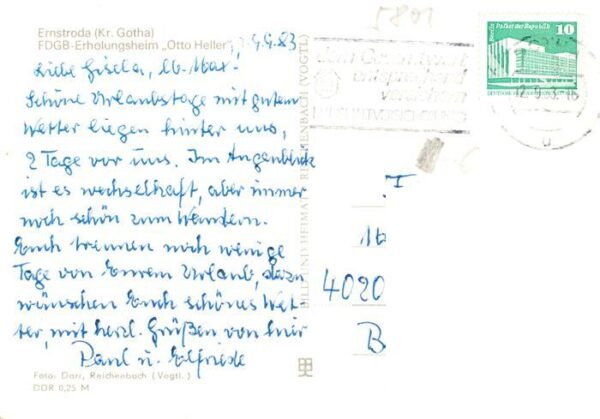 Ernstroda (Kr. Gotha)
FDGB-Erholungsheim „Otto Heller"
9.9.83
Liebe Gisela, lb. Max.
Schöne Urlaubstage mit gutem
Wetter liegen hinter uns,
2 Tage vor uns. Im Augenblick
ist es wechselhaft, aber immer
noch schön zum Wandern.
Euch trennen noch wenige
Tage von Eurem Urlaub, dazu
wünschen Euch schönes Wet-
ter, mit herzl. Grüßen von hier
Paul u. Elfriede
Foto: Darr, Reichenbach (Vogtl.)
DDR 0,25 M
BILD UND HEIMAT REICHENBACH (VOGTL)
5801
Berlin, Palast der Republik
10
DDR
16
4020
B